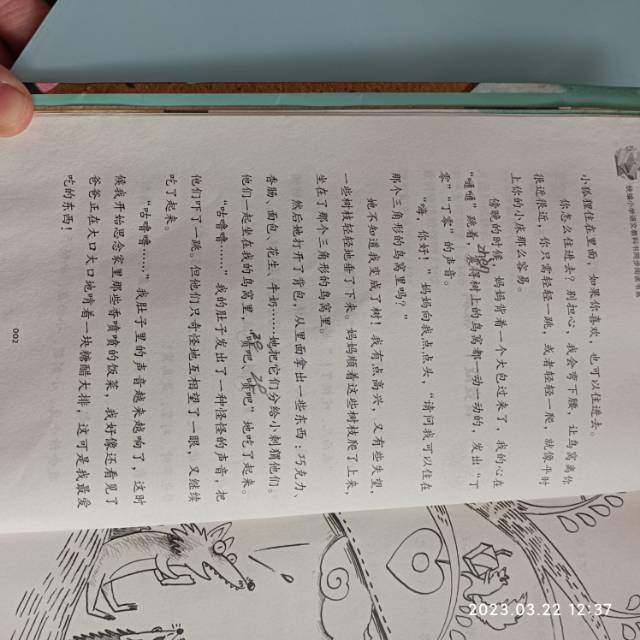 统编小学语文教科书同步阅读书系
小狐狸住在里面；如果你喜欢，也可以住进去。
你怎么住进去？别担心，我会弯下腰，让鸟窝离你
很近很近，你只需轻轻一跳，或者轻轻一爬，就像平时
上你的小床那么容易。
傍晚的时候，妈妈背着一个大包过来了，我的心在
跳着，树上的鸟窝都一动一动的，发出“丁
零”“丁零”的声音。
“嗨，你好！”妈妈向我点点头，“请问我可以住在
那个三角形的鸟窝里吗？”
她不知道我变成了树！我有点高兴，又有些失望，
一些树枝轻轻地垂了下来。妈妈顺着这些树枝爬了上来，
坐在了那个三角形的鸟窝里。
然后她打开了背包，从里面拿出一些东西：巧克力、
香肠、面包、花生、牛奶……她把它们分给小刺猬他们。
他们一起坐在我的鸟窝里，地吃了起来。
“咕噜噜……”我的肚子发出了一种怪怪的声音，把
他们吓了一跳。但他们只奇怪地互相望了一眼，又继续
吃了起来。
“咕噜噜……”我肚子里的声音越来越响了，这时
候我开始思念家里那些香喷喷的饭菜，我好像还看见了
爸爸正在大口大口地啃着一块糖醋大排，这可是我最爱
吃的东西！
002
2023.03.22 12:37